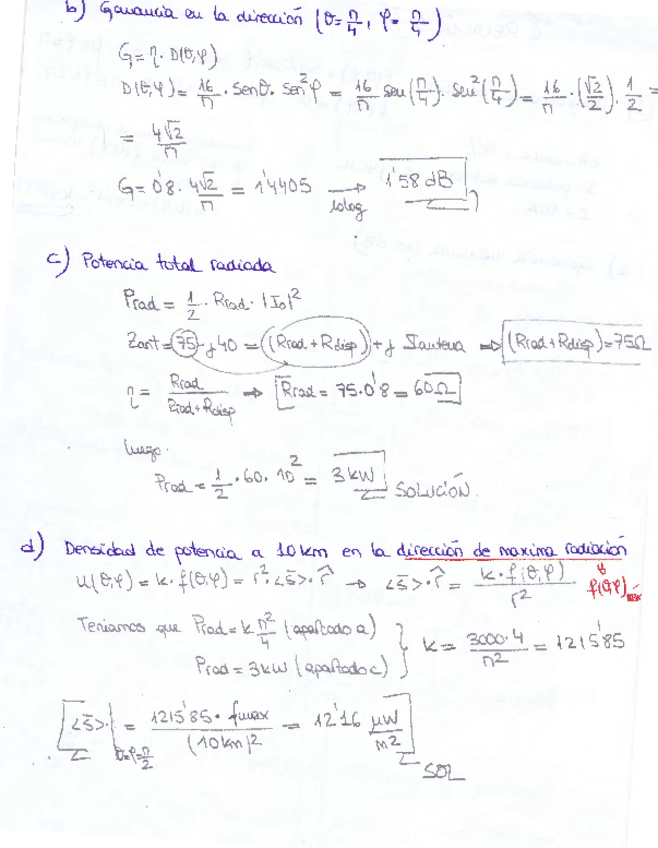 b) Ganancia en la dirección (θ=π/4, φ=π/4)
G=η·D(θ,φ)
D(θ,φ)=16/π·senθ·sen²φ=16/π sen(π/4)·sen²(π/4)=16/π·(√2/2)·1/2=
=4√2/π
G=0'8·4√2/π=1'4405 → 10log 1'58 dB
c) Potencia total radiada
Prad=1/2·Rrad·|Io|²
Zant=75-j40=(Rrad+Rdisp)+j Xantena ⇒ (Rrad+Rdisp)=75Ω
η=Rrad/Rrad+Rdisp ⇒ Rrad=75·0'8=60Ω
luego:
Prad=1/2·60·10²=3kW SOLUCIÓN.
d) Densidad de potencia a 10km en la dirección de maxima radiación
U(θ,φ)=k·f(θ,φ)=r²·<S>·r̂ → <S>·r̂=k·f(θ,φ)/r² f(θ,φ)max
Teniamos que Prad=kπ²/4 (apartado a)
Prad=3kW (apartado c) } k=3000·4/π²=1215'85
<S>·|θ=φ=π/2=1215'85·fmax/(10km)²=12'16 μW/m²
SOL